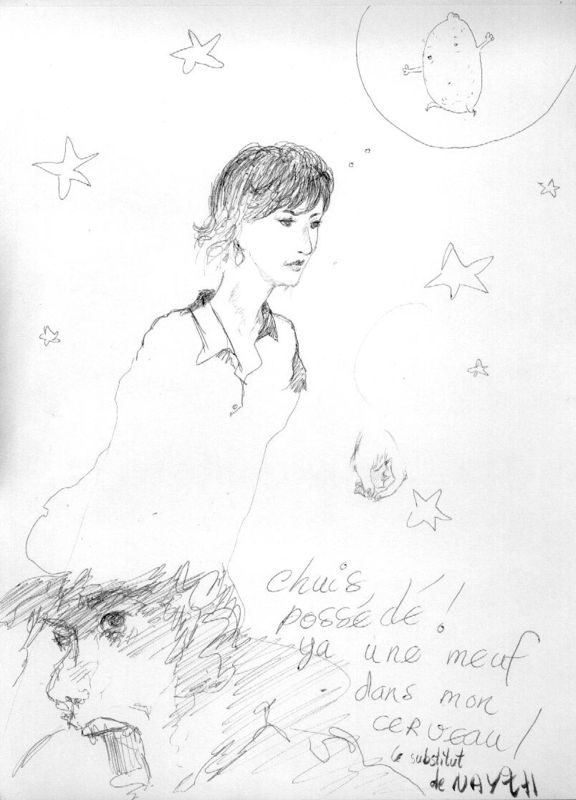 chuis
possédé !
ya une meuf
dans mon
cerveau !
le substitut
de